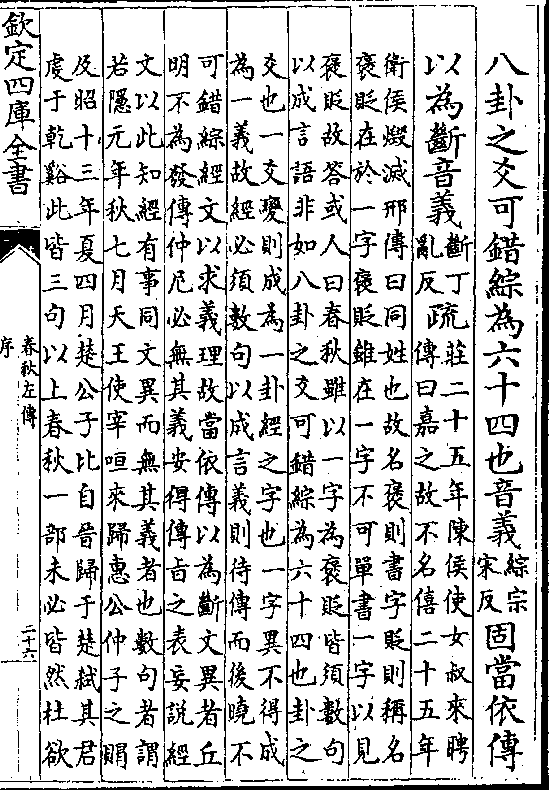 八卦之爻可錯綜為六十四也音義綜宗
宋反固當依傳
以為斷音義斷丁
亂反疏莊二十五年陳侯使女叔來聘
傳曰嘉之故不名僖二十五年
衛侯燬滅邢傳曰同姓也故名褒則書字貶則稱名
褒貶在於一字褒貶雖在一字不可單書一字以見
褒貶故答或人曰春秋雖以一字為褒貶皆須數句
以成言語非如八卦之爻可錯綜為六十四也卦之
爻也一爻變則成為一卦經之字也一字異不得成
為一義故經必須數句以成言義則待傳而後曉不
可錯綜經文以求義理故當依傳以為斷文異者丘
明不為發傳仲尼必無其義安得傳旨之表妄說經
文以此知經有事同文異而無其義者也數句者謂
若隱元年秋七月天王使宰咺來歸惠公仲子之賵
及昭十三年夏四月楚公子比自晉歸于楚弒其君
虔于乾谿此皆三句以上春秋一部未必皆然杜欲
欽定四庫全書
春秋左傳
序
二十六